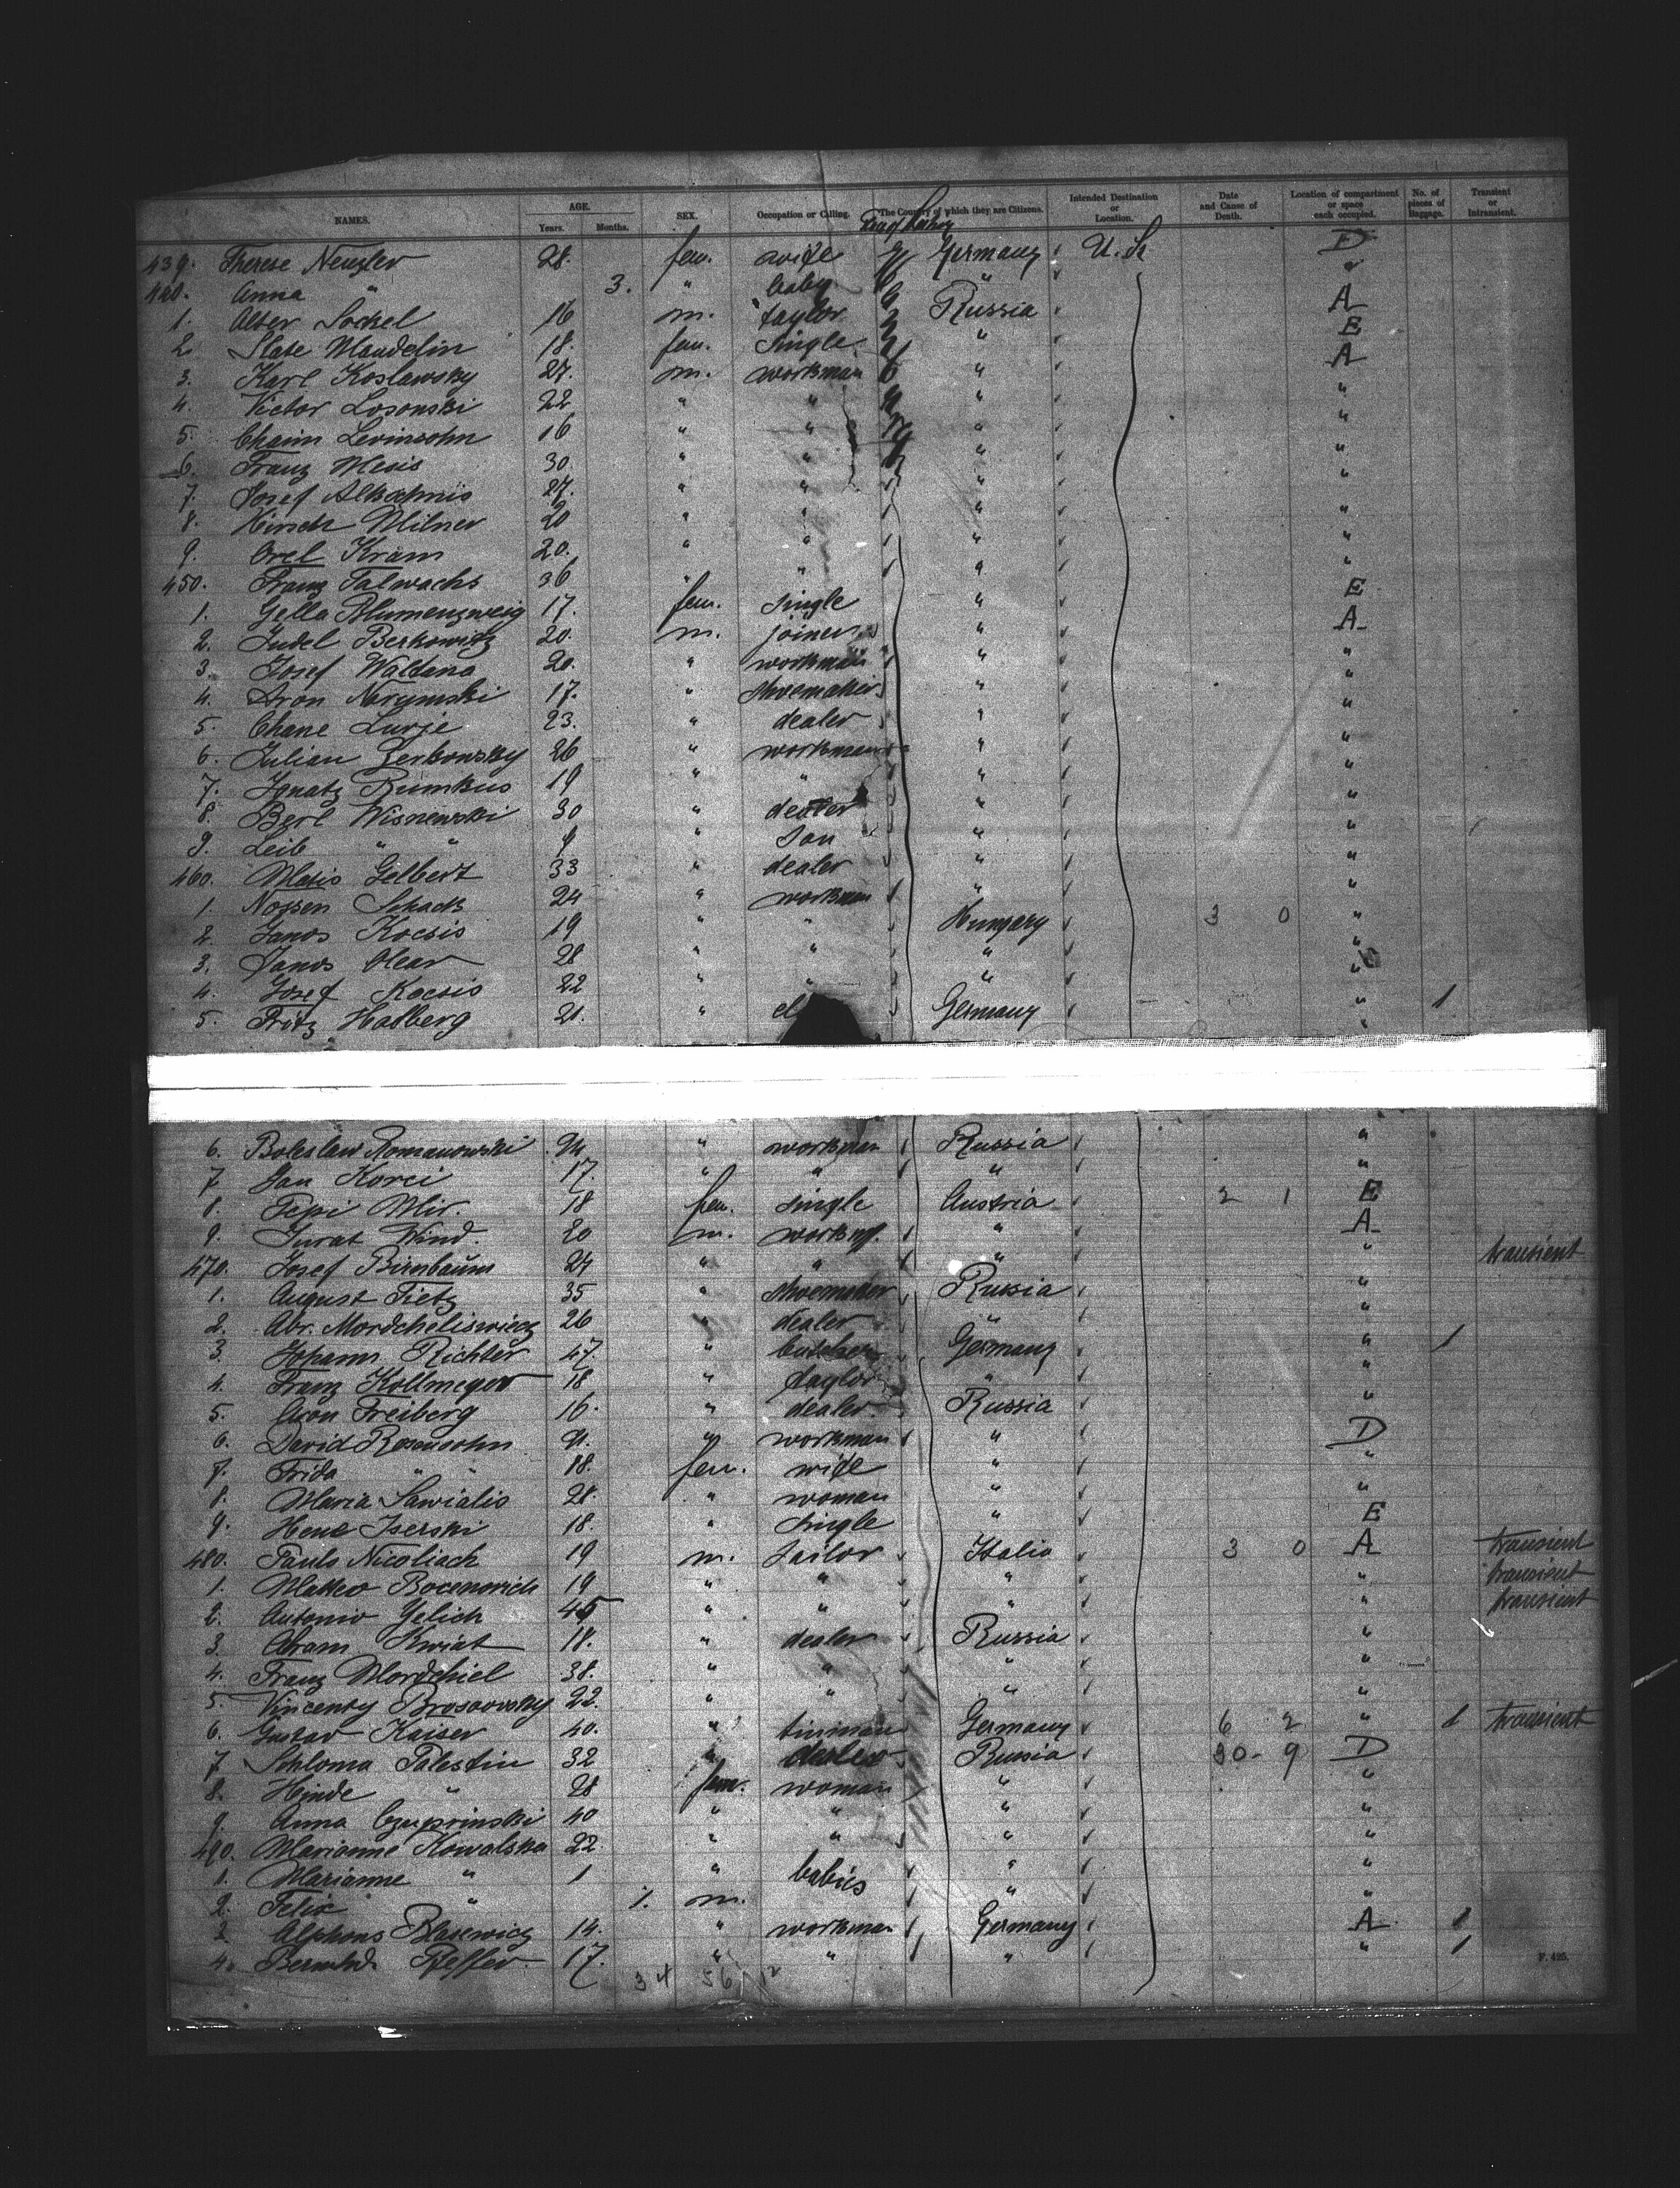 NAMES. AGE. Years. Months. SEX. Occupation or Calling. The Country of which they are Citizens. Intended Destination or Location. Date and Cause of Death. Location of compartment or space each occupied. No. of pieces of Baggage. Transient or Intransient.
439. Therese Neuzler 28. fem. wife Germany U. St D
440. Anna " 3. " baby " "
1. Alter Sockel 16 m. taylor Russia A
2 Slate Mandelin 18. fem. single " E
3. Karl Koslawsky 27. m. workman " A
4. Victor Losonski 22 " " " "
5. Chaim Levinsohn 16 " " " "
6. Franz Mesis 30. " " " "
7. Josef 27. " " " "
8. Hirsch Milner 20 " " " "
9. Orel Kram 20. " " " "
450. Franz Salwachs 36 " " " "
1. Gella Blumenzweig 17. fem. single " E
2. Judel Berkowitz 20. m. joiner " A
3. Josef Waldana 20. " workman " "
4. Aron Narymski 17. " shoemaker " "
5. Chane Lurje 23. " dealer " "
6. Julian Zerkowsky 26 " workman " "
7. Ignatz Rumkus 19 " " " "
8. Berl Wisnewski 30 " dealer " "
9. Leib " " 9 " Son " "
460. Mesis Gelbert 33 " dealer " "
1. Nossen Schack 24 " workman " "
2. Janos Kocsis 19 " " Hungary 3 0 "
3. Janos Olear 28 " " " "
4. Josef Kocsis 22 " " " "
5. Fritz Halberg 21. " Germany " 1
6. Boleslaw Romanowski 24 " workman Russia "
7 Jan Korci 17. " " " "
8. Pepi Mir. 18 fem. single Austria 2 1 E
9. Jurat Wind. 20 m. workm. " A
470. Josef Birnbaum 24 " " " " transient
1. August Tietz 35 " shoemaker Russia "
2. Abr. Mordcheliswicz 26 " dealer " "
3. Johann Richter 47 " butcher Germany " 1
4. Franz Kollmeyer 18 " taylor " "
5. Aron Freiberg 16. " dealer Russia "
6. David Rosensohn 21. " workman " D
7. Frida " " 18. fem. wife " "
8. Maria Sawialis 28. " woman " "
9. Hene Iserski 18. " single " E
480. Paulo Nicoliach 19 m. sailor Italia 3 0 A transient
1. Matteo Bocenovich 19 " " " " transient
2. Antonio Gelich 45 " " " " transient
3. Abram Kwiat 18. " dealer Russia "
4. Franz Mordchiel 38. " " " "
5. Vincenty Brosowsky 22. " " " "
6. Gustav Kaiser 40. " tinman Germany 6 2 " 1 transient
7 Schloma Palestin 32 " dealer Russia 30 - 9 D
8. Hinde " 28 fem. woman " "
9. Anna Czuprinski 40 " " " "
490. Marianne Kowalska 22. " " " "
1. Marianne " 1 " babies " "
2. Felix " 1. m. " "
3 Alphons Blasewicz 14. " workman Germany A 1
4. Bernhd. Keffer 17. " " " " 1
34 56 12
F. 425.